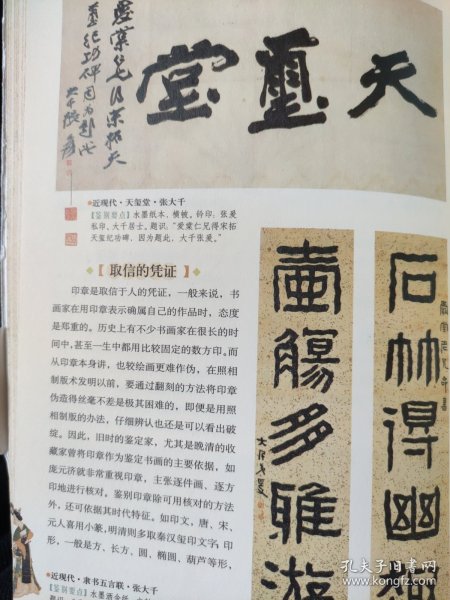 天璽堂
愛棠仁兄得宋拓天
璽紀功碑因为題此
大千張爰
●近现代·天玺堂·张大千
【鉴别要点】水墨纸本，横披。钤印：张爰
私印、大千居士。题识：“爱棠仁兄得宋拓
天玺纪功碑，因为题此，大千张爰。”
【取信的凭证】
印章是取信于人的凭证，一般来说，书
画家在用印章表示确属自己的作品时，态度
是郑重的。历史上有不少书画家在很长的时
间中，甚至一生中都用比较固定的数方印。而
从印章本身讲，也较绘画更难作伪，在照相
制版术发明以前，要通过翻刻的方法将印章
伪造得丝毫不差是极其困难的，即便是用照
相制版的办法，仔细辨认也还是可以看出破
绽。因此，旧时的鉴定家，尤其是晚清的收
藏家曾将印章作为鉴定书画的主要依据，如
庞元济就非常重视印章，主张逐件画、逐方
印地进行核对，鉴别印章除可用核对的方法
外，还可依据其时代特征。如印文，唐、宋、
元人喜用小篆，明清则多取秦汉玺印文字；印
形，一般是方、长方、圆、椭圆、葫芦等形，
石林得幽
壺觴多雅游
●近现代·隶书五言联·张大千
【鉴别要点】水墨洒金纸
孔夫子旧书网